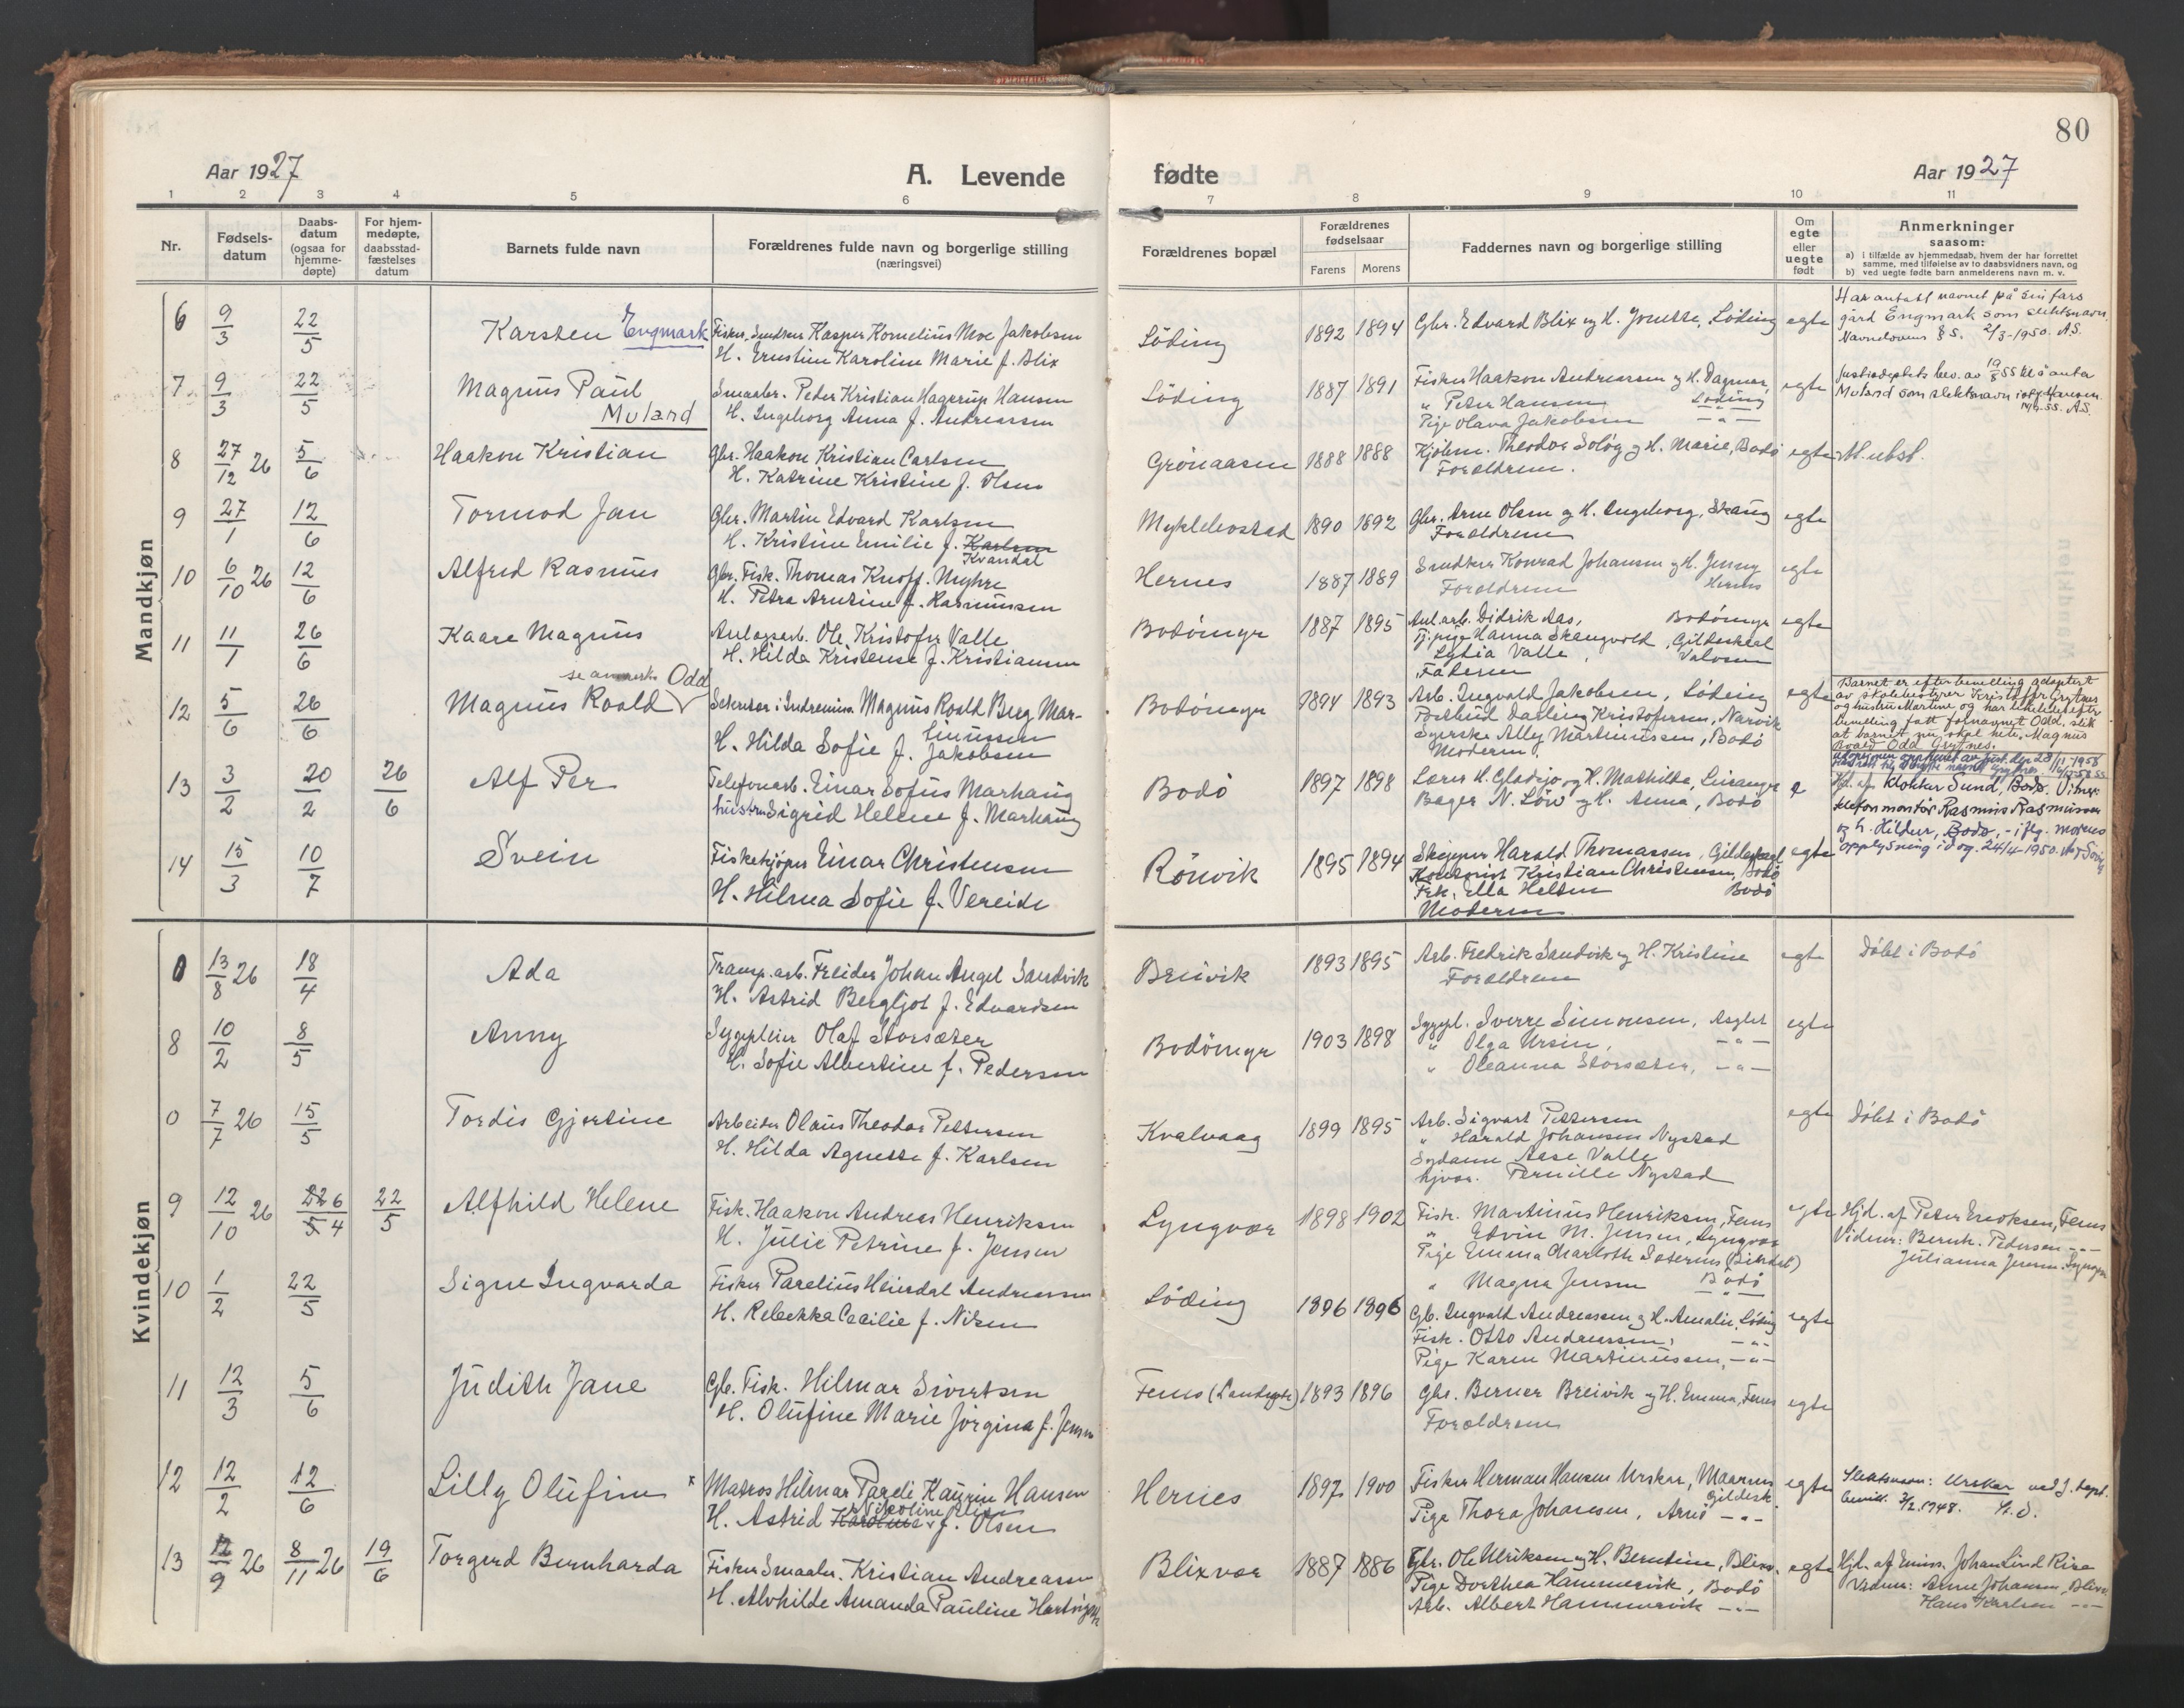 80
Aar 1927
A. Levende
fødte
Aar 1927
1 2 3 4 5 6 7 8 9 10 11
Nr.
Fødsels-
datum
Daabs-
datum
(ogsaa for
hjemme-
døpte)
For hjem-
medøpte,
daabsstad-
fæstelses
datum
Barnets fulde navn
Forældrenes fulde navn og borgerlige stilling
(næringsvei)
Forældrenes bopæl
Forældrenes
fødselsaar
Farens
Morens
Faddernes navn og borgerlige stilling
Om
egte
eller
uegte
født
Anmerkninger
saasom:
a) i tilfælde av hjemmedaab, hvem der har forrettet
samme, med tilføielse av to daabsvidners navn, og
b) ved uegte fødte barn anmelderens navn m. v.
Mandkjøn
6 9/3 22/5 Karsten Engmark
Fisker, Smedkar Kasper Kornelius Moe Jakobsen
H. Ernstine Karoline Marie f. Blix
Löding 1892 1894
Gbr. Edvard Blix og H. Jonette, Löding egte
Har antatt navnet på sin fars
gård Engmark som slektsnavn,
Navneloven § 5. 2/3-1950. A.S.
7 9/3 22/5 Magnus Paul
Muland
Smaabr. Peter Kristian Hagerup Hansen
H. Ingeborg Anna f. Andreassen
Löding 1887 1891
Fisker Haakon Andreassen og H. Dagmar,
" Peter Hansen Löding
Pige Olava Jakobsen -"-
egte
Muland som slektsnavn
8 27/12 26 5/6 Haakon Kristian
Gbr. Haakon Kristian Carlsen
H. Katrine Kristine f. Olsen
Grönaasen 1888 1888
Kjöbm. Theodor Solöy og H. Marie, Bodö
Foreldrene.
egte
9 27/1 12/6 Tormod Jan
Gbr. Martin Edvard Karlsen
H. Kristine Emilie f. Karlsen
Kvandal
Myklebostad 1890 1892
Gbr. Arne Olsen og H. Ingeborg, Skaug
Foreldrene
egte
10 6/10 26 12/6 Alfred Rasmus
Gbr. Fisk. Thomas Knoff. Myhre
H. Petra Arntine f. Rasmussen
Hernes 1887 1889
Smedker Konrad Johansen og H. Jenny
Foreldrene Hernes
egte
11 11/1 26/6 Kaare Magnus
Anlagsarb. Ole Kristofer Valle
H. Hilda Kristense f. Kristiansen
Bodömyr 1887 1895
Anl.arb. Didrik Aas, Bodömyr
Tj.pige Hanna Skaugvold, Gildeskaal
Lydia Valle, Valosen
Faderen
egte
12 5/6 26/6 Magnus Roald
se anmerkn Odd
Sekretær i Indremis. Magnus Roald Berg Mar-
tinussen
H. Hilda Sofie f. Jakobsen
Bodömyr 1894 1893
Arb. Ingvald Jakobsen, Löding
Postbud Darling Kristofersen, Narvik
Syerske Ally Martinussen, Bodö
Moderen
egte
Barnet er efter bevilling adoptert
av skolebestyrer Kristoffer Grytnes
og hustru Martine og har likeledes efter
bevilling fått fornavnet Odd, slik
at barnet nu skal hete, Magnus
Roald Odd Grytnes.
13 3/2 20/2 26/6 Alf Per
Telefonarb. Einar Sofus Marhaug
hustru Sigrid Helene f. Marhaug
Bodö 1897 1898
Lærer H. Gladsjo og H. Mathilda, Leiranger
Bager N. Löv og H. Anna, Bodö
e
Hjd. af Klokker Sund, Bodö. Vitner:
telefonmontör Rasmus Rasmussen
og h. Hildur, Bodö, - iflg. morens
opplysning idag. 24/4-1950.
14 15/3 10/7 Svein
Fiskekjøper Einar Christensen
H. Hilma Sofie f. Vereide
Rönvik 1895 1894
Skipper Harald Thomassen, Gildeskaal
Kontorist Kristian Christensen, Bodö
Frk. Ella Heltne Bodö
Moderen
egte
Kvindekjøn
0 13/8 26 18/4 Ada
Transp.arb. Freider Johan Angel Sandvik
H. Astrid Bergljot f. Edvardsen
Breivik 1893 1895
Arb. Fredrik Sandvik og H. Kristine
Foreldrene
egte
Döbt i Bodö
8 10/2 8/5 Anny
Sygepleier Olaf Storsæter
H. Sofie Albertine f. Pedersen
Bodömyr 1903 1898
Sygepl. Sverre Simonsen, Asylet
" Olga Ursin, -"-
" Oleanna Storsæter, -"-
egte
0 7/7 26 15/5 Tordis Gjertine
Arbeider Olaus Theodor Pettersen
H. Hilda Agnette f. Karlsen
Kvalvaag 1899 1895
Arb. Sigvart Pettersen
" Harald Johansen Nystad
Sydame Aase Valle
Pernille Nystad
egte
Döbt i Bodö
9 12/10 26 226/5 4 22/5 Alfhild Helene
Fisk. Haakon Andreas Henriksen
H. Julie Petrine f. Jensen
Lyngvær 1898 1902
Fisk. Martinus Henriksen, Fenes
" Edvin M. Jensen, Lyngvær
Pige Emma Charlotte
" Magna Jensen Bodö
egte
Hjd. af Peter Enoksen, Fenes
Vidner: Bernh. Pedersen -"-
Julianna Jensen. Lyngvær
10 1/2 22/5 Signe Ingvarda
Fisker Parelius Heirdal Andreassen
H. Rebekka Cecilie f. Nilsen
Löding 1896 1896
Gb. Ingvald Andreassen og H. Amalie, Löding
Fisk. Otto Andreassen, -"-
Pige Karen Martinussen, -"-
egte
11 12/3 5/6 Judith Jane
Gb. Fisk. Hilmar Sivertsen
H. Olufine Marie Jörgina f. Jensen
Fenes (Landego) 1893 1896
Gbr. Berner Breivik og H. Emma, Fenes
Foreldrene
egte
12 12/2 12/6 Lilly Olufine
x Matros Hilmar Pareli Kaurin Hansen
Nikoline
H. Astrid Karolina f. Olsen
Hernes 1897 1900
Fisker Herman Hansen Urskar, Maarnes
Gildesk.
Pige Thora Johansen, Arnö -"-
egte
Slektsnavn: Urskar ved J. dept.
bevill. 3/2.1948.
13 12/9 26 8/11 26 19/6 Torgerd Bernharda
Fisker Smaabr. Kristian Andreassen
H. Alvhilde Amanda Pauline Hartvigsen
Blixvær 1887 1886
Gbr. Ole Ulriksen og H. Berntine, Blixv.
Pige Dorthea Hammervik, Bodö
Arb. Albert Hammervik -"-
egte
Hjd. af Emiss. Johan Lind Rise
Vidner: Anne Johansen, Blixv.